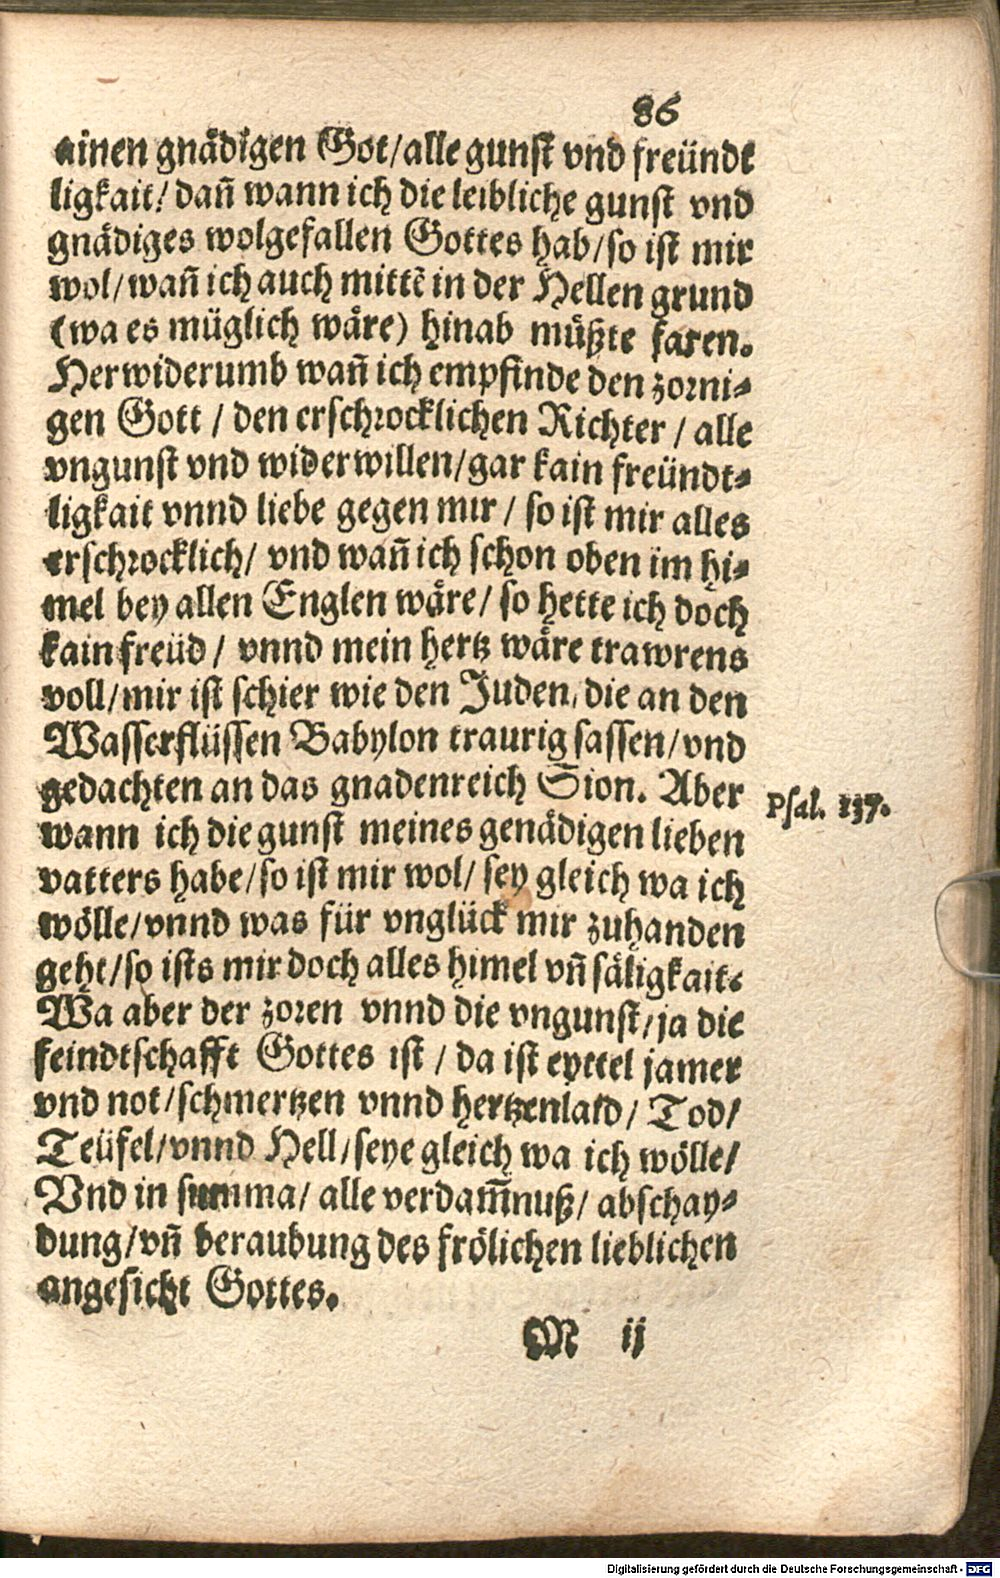 86
ainen gnädigen Got/alle gunst vnd freündt
ligkait/ dañ wann ich die leibliche gunst vnd
gnädiges wolgefallen Gottes hab/so ist mir
wol/wañ ich auch mittẽ in der Hellen grund
(wa es müglich wäre) hinab müßte faren.
Herwiderumb wañ ich empfinde den zorni-
gen Gott / den erschrocklichen Richter / alle
vngunst vnd widerwillen/gar kain freündt-
ligkait vnnd liebe gegen mir / so ist mir alles
erschrocklich/ vnd wañ ich schon oben im hi-
mel bey allen Englen wäre/ so hette ich doch
kain freüd / vnnd mein hertz wäre trawrens
voll/mir ist schier wie den Juden, die an den
Wasserflüssen Babylon traurig sassen/vnd
gedachten an das gnadenreich Sion. Aber
Psal. 137.
wann ich die gunst meines genädigen lieben
vatters habe/so ist mir wol/ sey gleich wa ich
wölle/vnnd was für vnglück mir zuhanden
geht/so ists mir doch alles himel vñ säligkait.
Wa aber der zoren vnnd die vngunst/ja die
feindtschafft Gottes ist / da ist eyttel jamer
vnd not/schmertzen vnnd hertzenlaid/ Tod/
Teüfel/vnnd Hell/seye gleich wa ich wölle/
Vnd in summa/ alle verdam̃nuß/ abschay-
dung/vñ beraubung des frölichen lieblichen
angesicht Gottes.
M ij
Digitalisierung gefördert durch die Deutsche Forschungsgemeinschaft - DFG